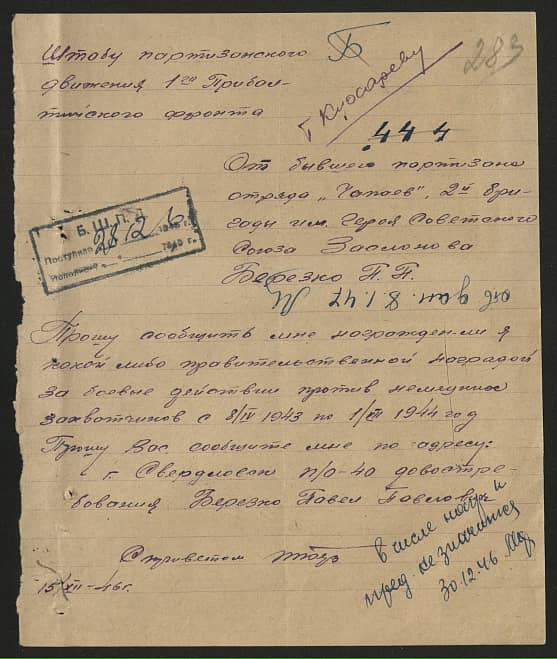 Штабу партизанского
движения 1го Прибал-
тийского фронта
т. Клюсареву
283
444
От бывшего партизана
отряда „Чапаев", 2й Бри-
годы им. Героя Советского
Союза Заслонова
Березко П. П.
Б. Ш. П. Д.
Поступило 28 12 194 6 г.
Исполнено 194 г.
отв дан. 8.1.47
Прошу сообщить мне награжден ли я
какой либо правительственной наградой
за боевые действии против немецких
захватчиков с 8/IV 1943 по 1/VII 1944 год
Прошу Вас сообщите мне по адресу:
г. Свердловск п/о-40 довостре-
бования Березко Павел Павлович
С приветом
15/XII-46г.
в числе нагр. и
пред. не значится
30.12.46